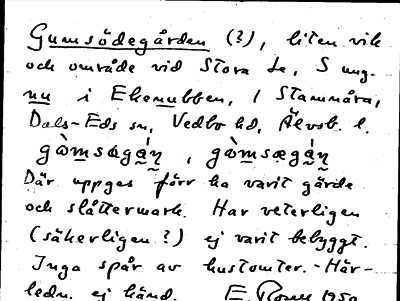 Gumsödegården (?), liten vik
och område vid Stora Le, S ung.
nu i Ekenubben, / Stammåra,
Dals-Eds sn, Vedbo hd, Älvsb. l.
Där uppges förr ha varit gärde
och slåttermark. Har veterligen
(säkerligen?) ej varit bebyggt.
Inga spår av hustomter. - Här-
ledn. ej känd. E. 1950